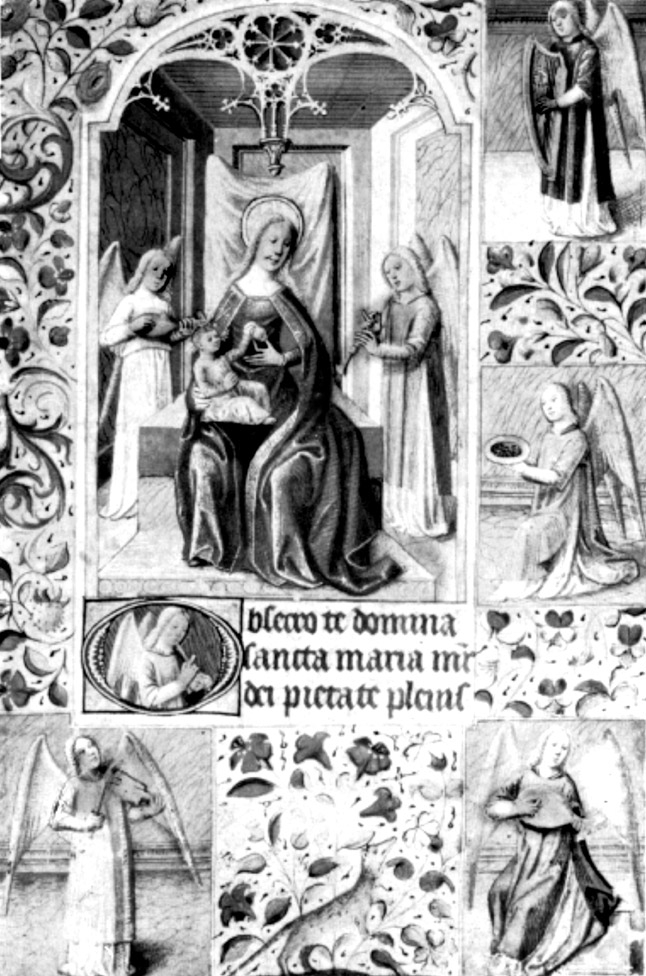 bsecro te domina
sancta maria mr̄
dei pietate pleniſ